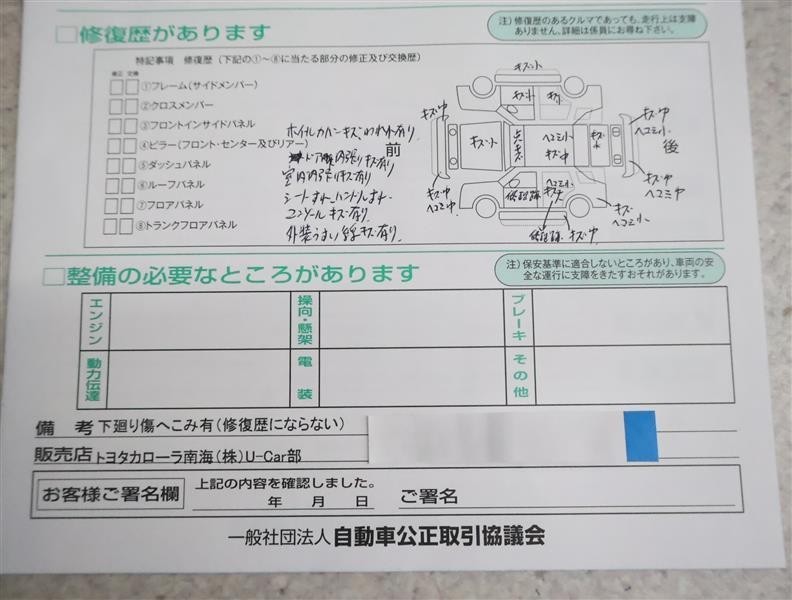 注）修復歴のあるクルマであっても、走行上は支障
ありません。詳細は係員にお尋ね下さい。
□修復歴があります
特記事項 修復歴（下記の①～⑧に当たる部分の修正及び交換歴）
修正 交換
①フレーム（サイドメンバー）
②クロスメンバー
③フロントインサイドパネル
④ピラー（フロント・センター及びリアー）
⑤ダッシュパネル
⑥ルーフパネル
⑦フロアパネル
⑧トランクフロアパネル
ホイルカバーキズ、われ有り
ドア内張りキズ有り
室内内張りキズ有り
シートすれ、ハンドルすれ
コンソールキズ有り
外装うすい線キズ有り
前
後
キズ小
キズ小
キズ小
キズ中
ヘコミ小
キズ小
点キズ
ヘコミ小
キズ中
キズ小
キズ中
ヘコミ中
キズ中
ヘコミ中
修理跡
ヘコミ小
キズ
ヘコミ小
修理跡
キズ中
□整備の必要なところがあります
注）保安基準に適合しないところがあり、車両の安
全な運行に支障をきたすおそれがあります。
エンジン
操向・懸架
ブレーキ
動力伝達
電装
その他
備考 下廻り傷へこみ有（修復歴にならない）
販売店 トヨタカローラ南海（株）U-Car部
お客様ご署名欄
上記の内容を確認しました。
年 月 日 ご署名
一般社団法人 自動車公正取引協議会